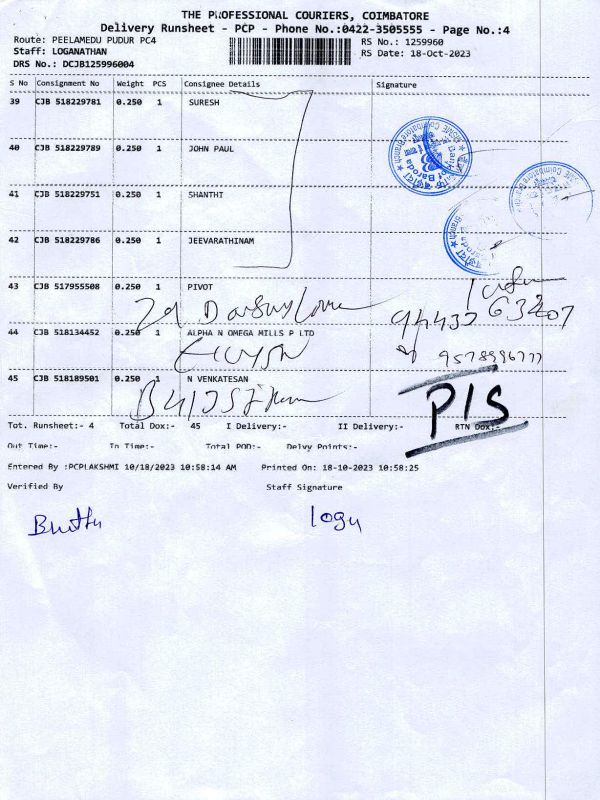 THE PROFESSIONAL COURIERS, COIMBATORE
Delivery Runsheet - PCP - Phone No.:0422-3505555 - Page No.:4
Route: PEELAMEDU PUDUR PC4 RS No.: 1259960
Staff: LOGANATHAN RS Date: 18-Oct-2023
DRS No.: DCJB125996004
S No Consignment No Weight PCS Consignee Details Signature
39 CJB 518229781 0.250 1 SURESH
40 CJB 518229789 0.250 1 JOHN PAUL
41 CJB 518229751 0.250 1 SHANTHI
42 CJB 518229786 0.250 1 JEEVARATHINAM
43 CJB 517955508 0.250 1 PIVOT
94432 63207
44 CJB 518134452 0.250 1 ALPHA N OMEGA MILLS P LTD
9578996777
45 CJB 518189501 0.250 1 N VENKATESAN
P/S
Tot. Runsheet:- 4 Total Dox:- 45 I Delivery:- II Delivery:- RTN Dox:-
Out Time:- In Time:- Total POD:- Delvy Points:-
Entered By :PCPLAKSHMI 10/18/2023 10:58:14 AM Printed On: 18-10-2023 10:58:25
Verified By Staff Signature
logu